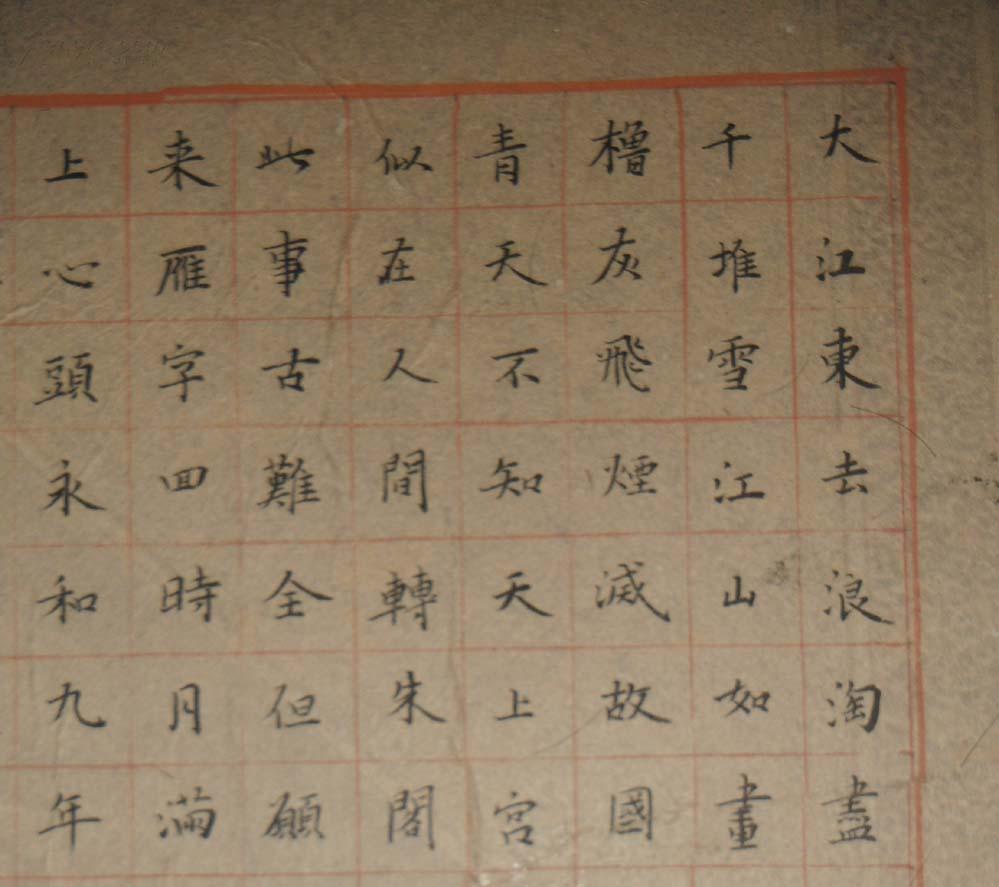 大江東去浪淘盡
千堆雪江山如畫
櫓灰飛煙滅故國
青天不知天上宮
似在人間轉朱閣
此事古難全但願
来雁字回時月滿
上心頭永和九年